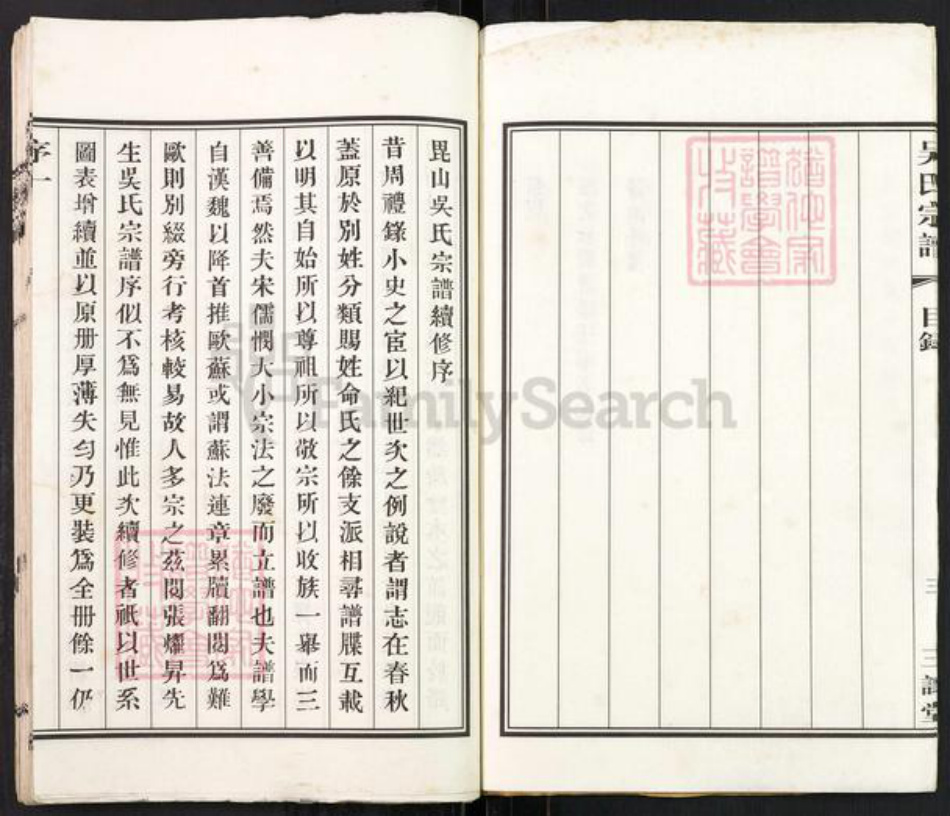 吳氏宗譜 目錄
三 三讓堂
毘山吳氏宗譜續修序
昔周禮錄小史之宦以紀世次之例說者謂志在春秋
蓋原於別姓分類賜姓命氏之餘支派相尋譜牒互載
以明其自始所以尊祖所以敬宗所以收族一舉而三
善備焉然夫宋儒憫大小宗法之廢而立譜也夫譜學
自漢魏以降首推歐蘇或謂蘇法連章累牘翻閱爲難
歐則別綴旁行考核較易故人多宗之茲閱張燿昇先
生吳氏宗譜序似不爲無見惟此次續修者祇以世系
圖表增續並以原册厚薄失勻乃更裝爲全册餘一仍
序一
FamilySearch